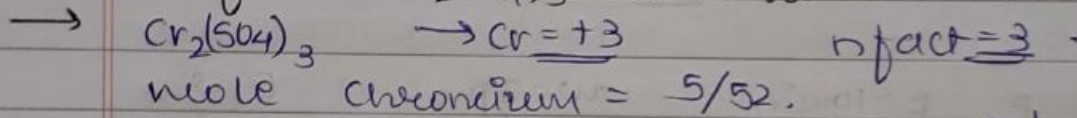 → Cr2(SO4)3 → Cr = +3 nfact = 3
mole chroncirum = 5/52.